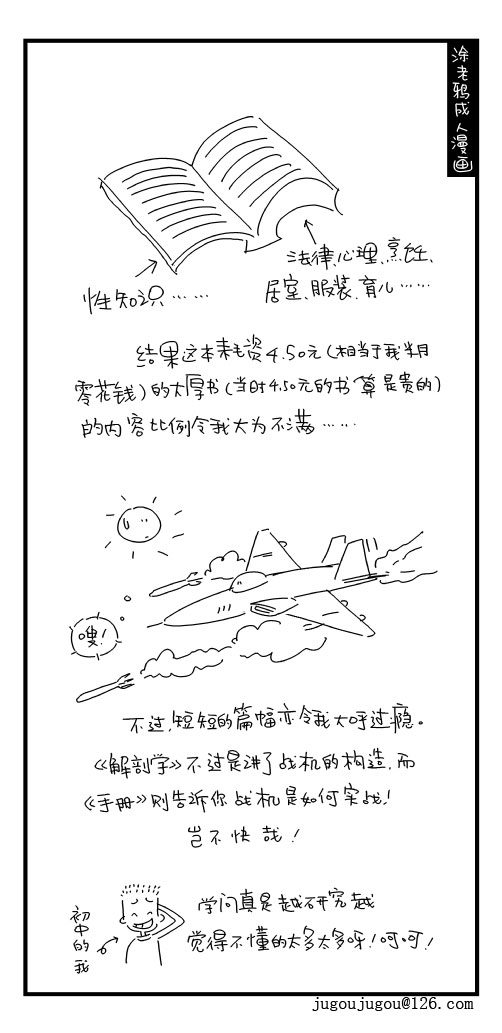 涂老鸦成人漫画
性知识……
法律、心理、烹饪、
居室、服装、育儿……
结果这本耗资4.50元(相当于我半月
零花钱)的大厚书(当时4.50元的书算是贵的)
的内容比例令我大为不满……
嗖!
不过,短短的篇幅亦令我大呼过瘾。
《解剖学》不过是讲了战机的构造,而
《手册》则告诉你战机是如何实战!
岂不快哉!
初中的我
学问真是越研究越
觉得不懂的太多太多呀!呵呵!
jugoujugou@126.com